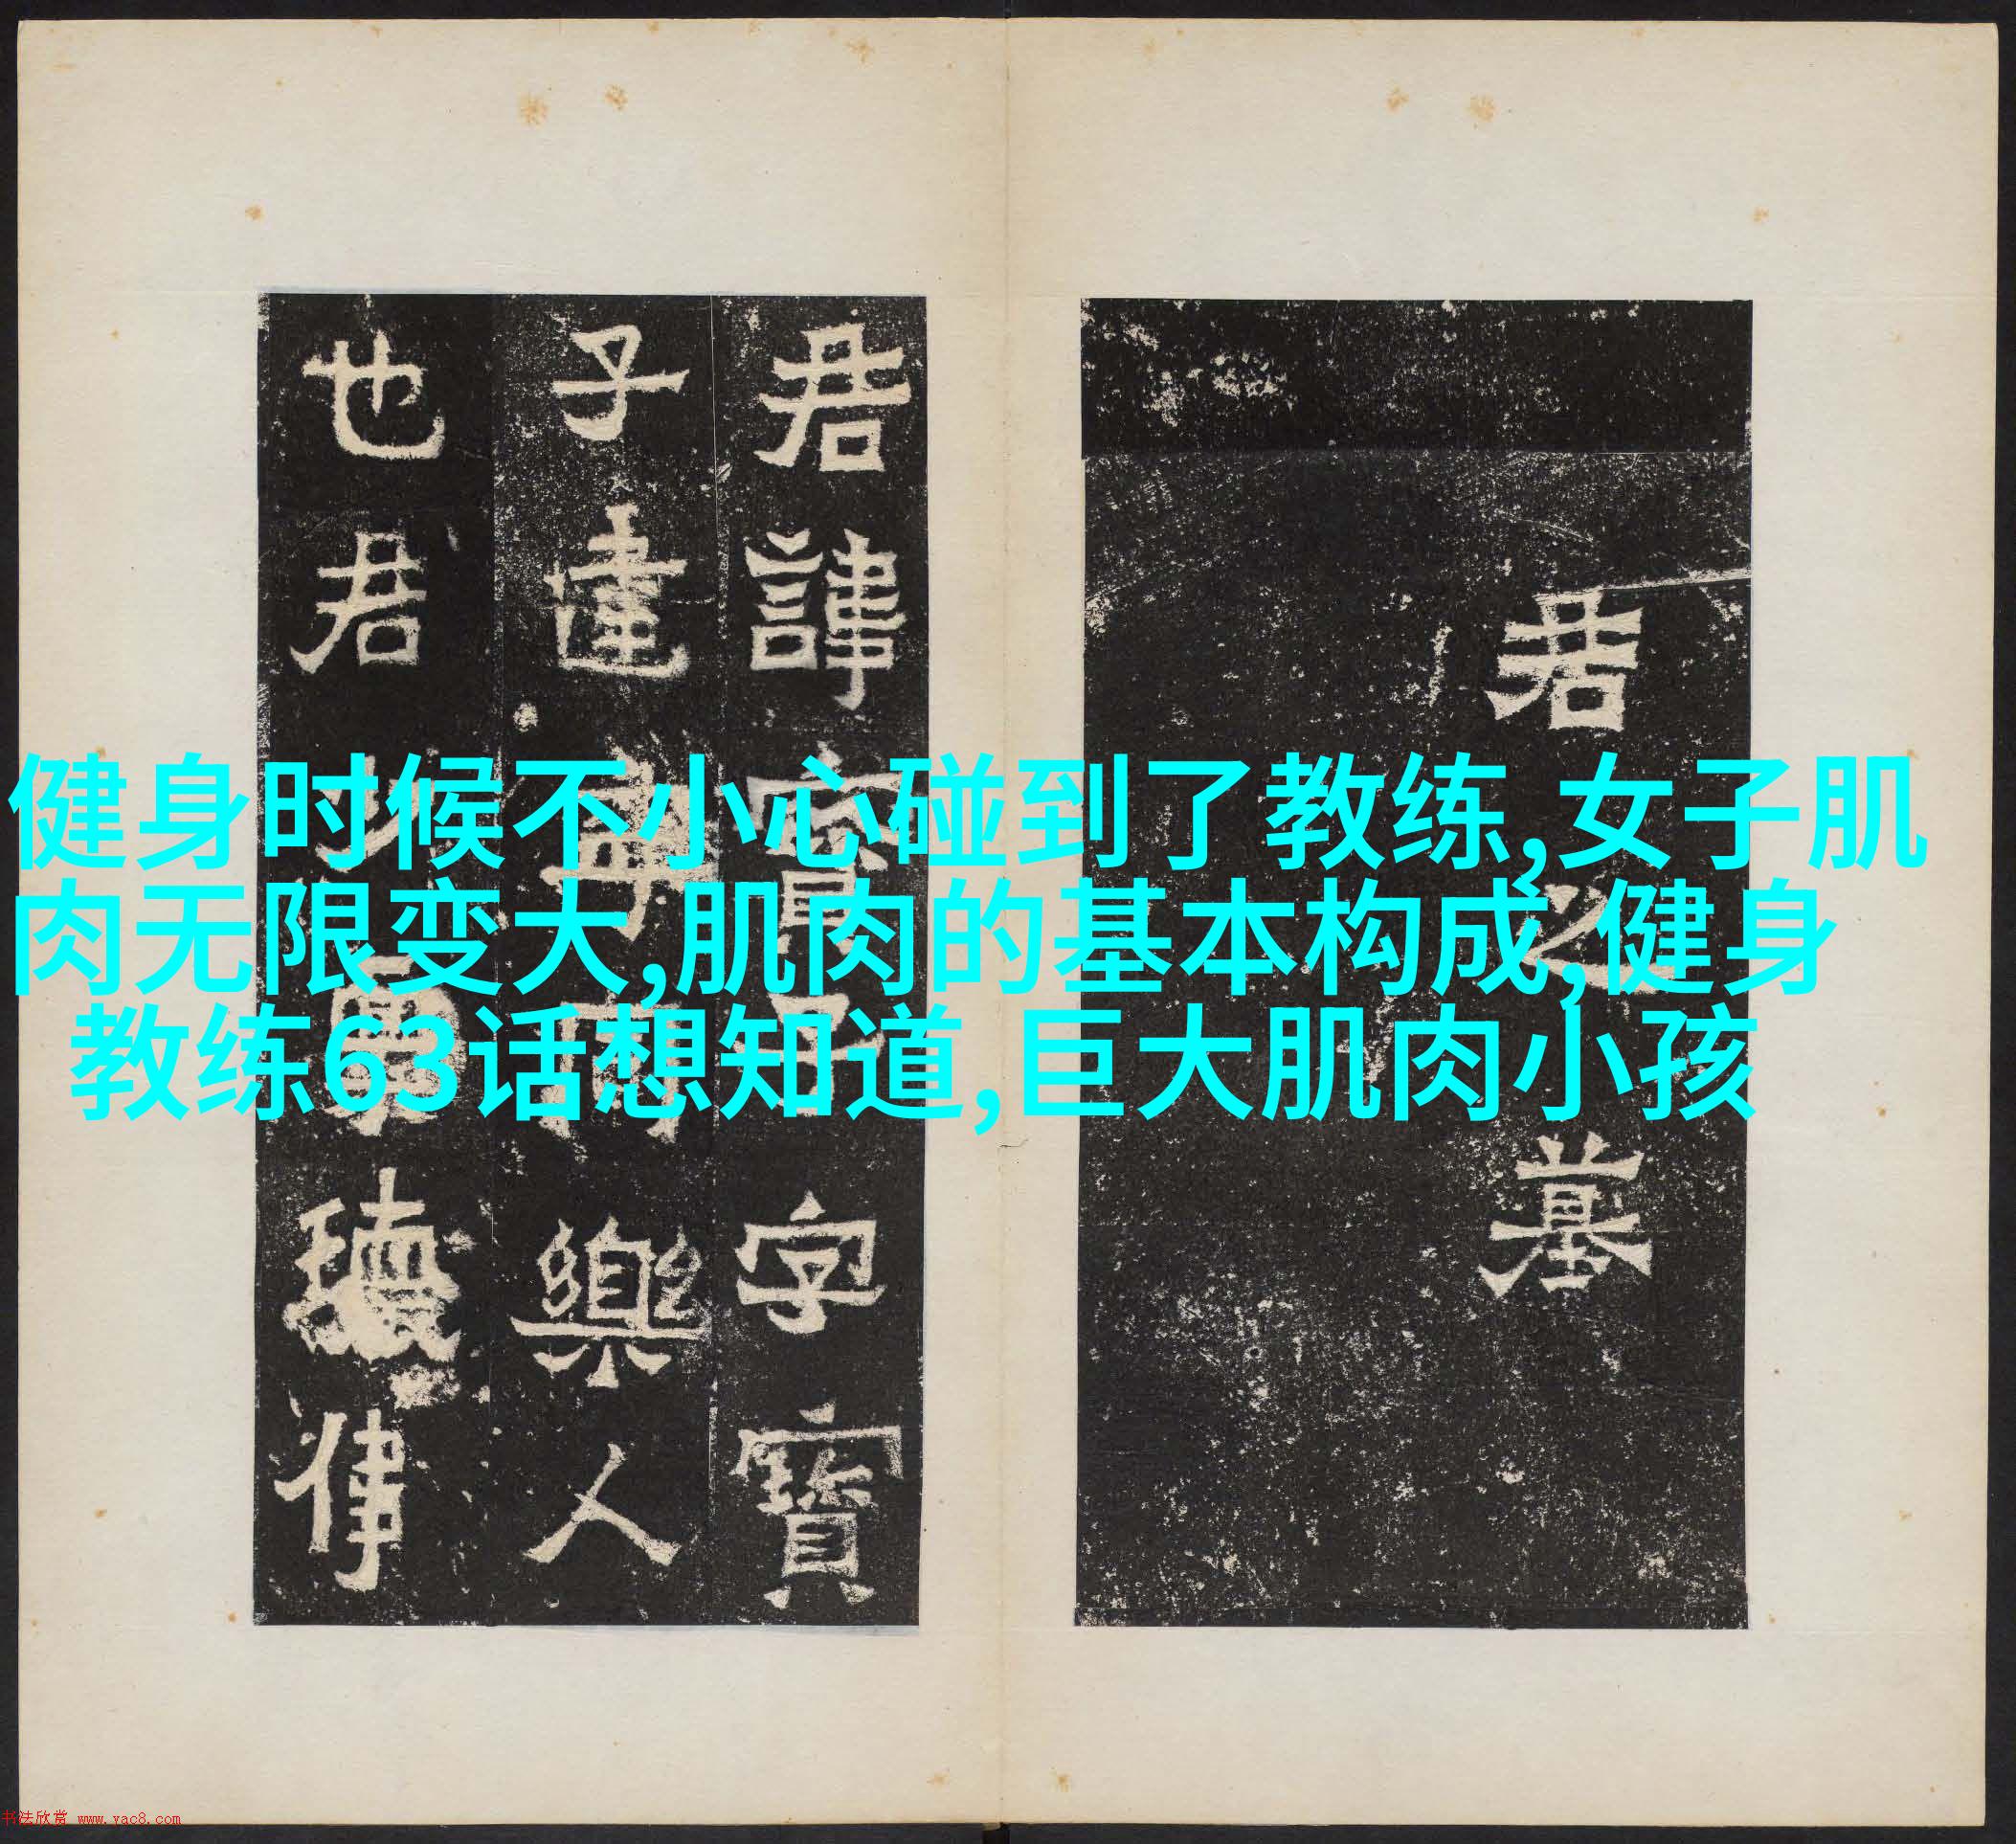 健身时候不小心碰到了教练,女子肌
肉无限变大,肌肉的基本构成,健身
教练63话想知道,巨大肌肉小孩
君之墓
君諱寶子字寶
子建寧同樂人
也君少稟瓌偉
书法欣赏 www.yac8.com